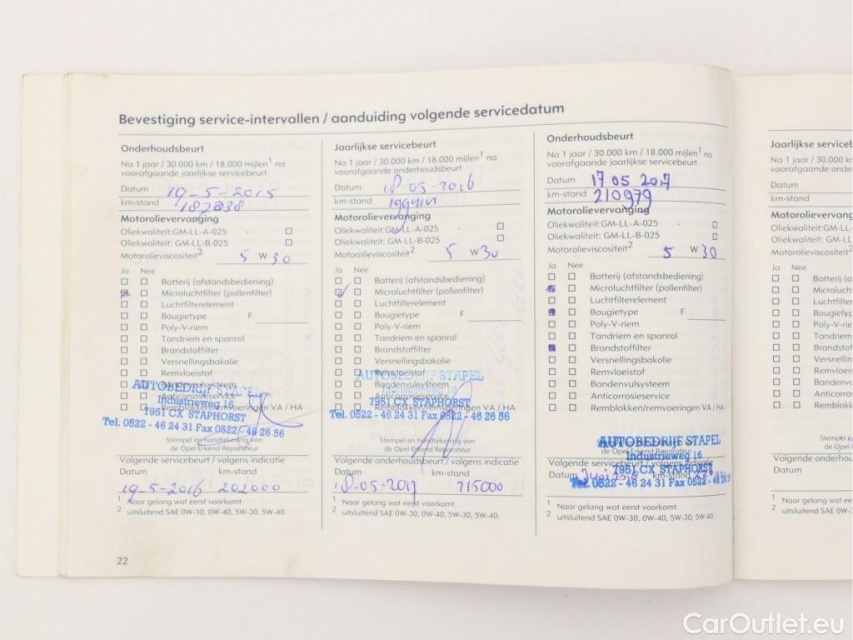 Bevestiging service-intervallen / aanduiding volgende servicedatum
Onderhoudsbeurt
Na 1 jaar / 30.000 km / 18.000 mijlen1 na
voorafgaande jaarlijkse servicebeurt
Datum 19-5-2015
km-stand 187838
Motorolievervanging
Oliekwaliteit: GM-LL-A-025
Oliekwaliteit: GM-LL-B-025
Motorolieviscositeit2 5 W 30
Ja Nee
Batterij (afstandsbediening)
Microluchtfilter (pollenfilter)
Luchtfilterelement
Bougietype F
Poly-V-riem
Tandriem en spanrol
Brandstoffilter
Versnellingsbakolie
Remvloeistof
Bandenvulsysteem
Anticorrosieservice
Remblokken/remvoeringen VA / HA
AUTOBEDRIJF STAPEL
Industrieweg 16
7951 CX STAPHORST
Tel. 0522 - 46 24 31 Fax 0522 - 46 26 56
Stempel en handtekening van
de Opel Erkend Reparateur
Volgende servicebeurt / volgens indicatie
Datum km-stand
19-5-2016 202000
1 Naar gelang wat eerst voorkomt.
2 uitsluitend SAE 0W-30, 0W-40, 5W-30, 5W-40.
22
Jaarlijkse servicebeurt
Na 1 jaar / 30.000 km / 18.000 mijlen1 na
voorafgaande onderhoudsbeurt
Datum 18 05-2016
km-stand
Motorolievervanging
Oliekwaliteit: GM-LL-A-025
Oliekwaliteit: GM-LL-B-025
Motorolieviscositeit2 5 W 30
Ja Nee
Batterij (afstandsbediening)
Microluchtfilter (pollenfilter)
Luchtfilterelement
Bougietype F
Poly-V-riem
Tandriem en spanrol
Brandstoffilter
Versnellingsbakolie
Remvloeistof
Bandenvulsysteem
Anticorrosieservice
Remblokken/remvoeringen VA / HA
AUTOBEDRIJF STAPEL
7951 CX STAPHORST
Tel. 0522 - 46 24 31 Fax 0522 - 46 26 56
Stempel en handtekening van
de Opel Erkend Reparateur
Volgende onderhoudsbeurt / volgens indicatie
Datum km-stand
18-05-2017 215000
1 Naar gelang wat eerst voorkomt.
2 uitsluitend SAE 0W-30, 0W-40, 5W-30, 5W-40.
Onderhoudsbeurt
Na 1 jaar / 30.000 km / 18.000 mijlen1 na
voorafgaande jaarlijkse servicebeurt
Datum 17 05 2017
km-stand 210979
Motorolievervanging
Oliekwaliteit: GM-LL-A-025
Oliekwaliteit: GM-LL-B-025
Motorolieviscositeit2 5 W 30
Ja Nee
Batterij (afstandsbediening)
Microluchtfilter (pollenfilter)
Luchtfilterelement
Bougietype F
Poly-V-riem
Tandriem en spanrol
Brandstoffilter
Versnellingsbakolie
Remvloeistof
Bandenvulsysteem
Anticorrosieservice
Remblokken/remvoeringen VA / HA
AUTOBEDRIJF STAPEL
de Opel Erkend Reparateur
Industrieweg 16
Volgende servicebeurt / volgens indicatie
7951 CX STAPHORST
Datum km-stand
Tel. 0522 - 46 24 31 Fax 0522 - 46 26 56
1 Naar gelang wat eerst voorkomt.
2 uitsluitend SAE 0W-30, 0W-40, 5W-30, 5W-40.
Jaarlijkse servicebe
Na 1 jaar / 30.000 km
voorafgaande onderho
Datum
km-stand
Motorolievervang
Oliekwaliteit: GM-LL-A
Oliekwaliteit: GM-LL-B
Motorolieviscositeit2
Ja Nee
Batterij (a
Microluch
Luchtfilte
Bougiety
Poly-V-rie
Tandriem
Brandsto
Versnelli
Remvloe
Bandenv
Anticorro
Remblok
Stempel
de Opel E
Volgende onderhoud
Datum
1 Naar gelang wat eer
2 uitsluitend SAE 0W-3
CarOutlet.eu